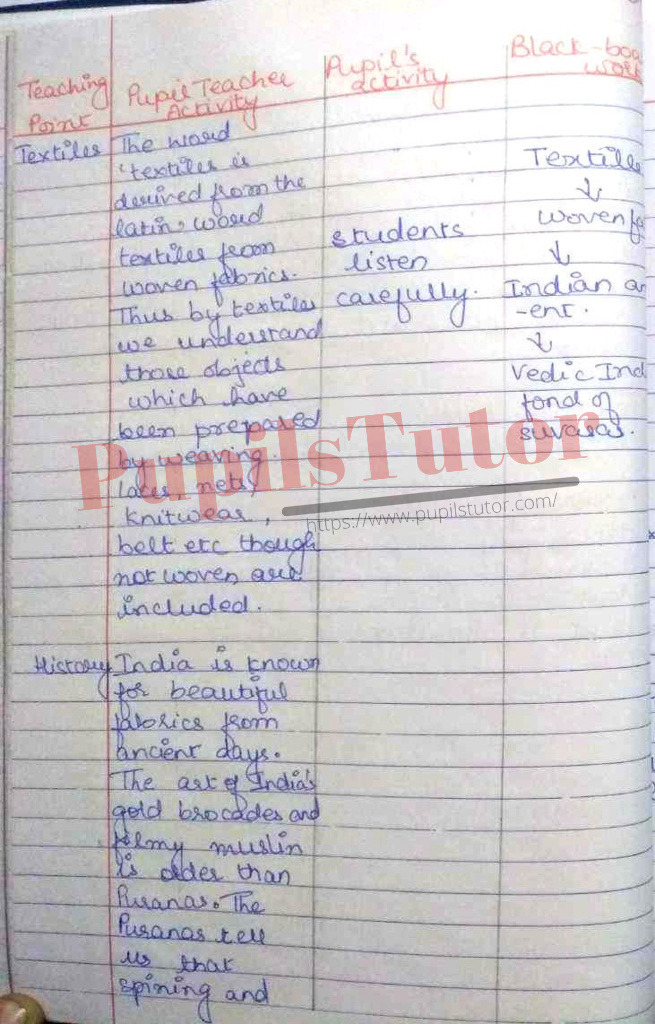 Teaching
Point
Pupil Teacher
Activity
Pupil's
activity
Black-boa
work
Textiles
The word
'textiles is
derived from the
latin, word
textiles from
woven fabrics.
Thus by textiles
we understand
those objects
which have
been prepared
by weaving.
laces, nets,
knitwear,
belt etc though
not woven are
included.
students
listen
carefully.
Textile
↓
woven fa
↓
Indian an
-ent.
↓
Vedic Ind
fond of
suvasas.
History
India is known
for beautiful
fabrics from
ancient days.
The art of India's
gold brocades and
filmy muslin
is older than
Puranas. The
Puranas tell
us that
spining and
PupilsTutor
https://www.pupilstutor.com/